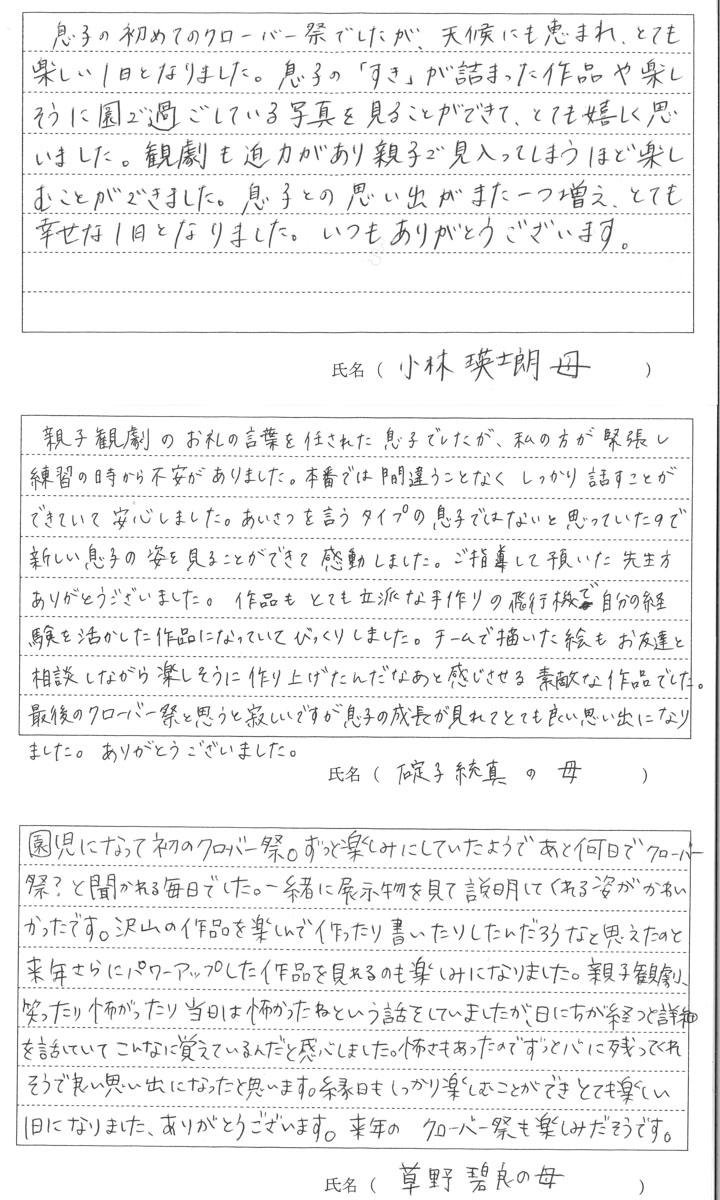 息子の初めてのクローバー祭でしたが、天候にも恵まれ、とても
楽しい1日となりました。息子の「すき」が詰まった作品や楽し
そうに園で過ごしている写真を見ることができて、とても嬉しく思
いました。観劇も迫力があり親子で見入ってしまうほど楽し
むことができました。息子との思い出がまた一つ増え、とても
幸せな1日となりました。いつもありがとうございます。
氏名（ 小林 瑛士朗 母 ）
親子観劇のお礼の言葉を任された息子でしたが、私の方が緊張し
練習の時から不安がありました。本番では間違うことなくしっかり話すことが
できていて安心しました。あいさつを言うタイプの息子ではないと思っていたので
新しい息子の姿を見ることができて感動しました。ご指導して頂いた先生方
ありがとうございました。作品もとても立派な手作りの飛行機で自分の経
験を活かした作品になっていてびっくりしました。チームで描いた絵もお友達と
相談しながら楽しそうに作り上げたんだなあと感じさせる素敵な作品でした。
最後のクローバー祭と思うと寂しいですが息子の成長が見れてとても良い思い出になり
ました。ありがとうございました。
氏名（ 碇子 統真 の 母 ）
園児になって初のクローバー祭。ずっと楽しみにしていたようであと何日でクローバー
祭？と聞かれる毎日でした。一緒に展示物を見て説明してくれる姿がかわい
かったです。沢山の作品を楽しんで作ったり書いたりしたんだろうなと思えたのと
来年さらにパワーアップした作品を見れるのも楽しみになりました。親子観劇、
笑ったり怖がったり当日は怖かったねという話をしていましたが、日にちが経つと詳細
を話していてこんなに覚えているんだと感心しました。怖さもあったのでずっと心に残ってくれ
そうで良い思い出になったと思います。縁日もしっかり楽しむことができとても楽しい
1日になりました、ありがとうございます。来年の クローバー祭も楽しみだそうです。
氏名（ 草野 碧良の母 ）